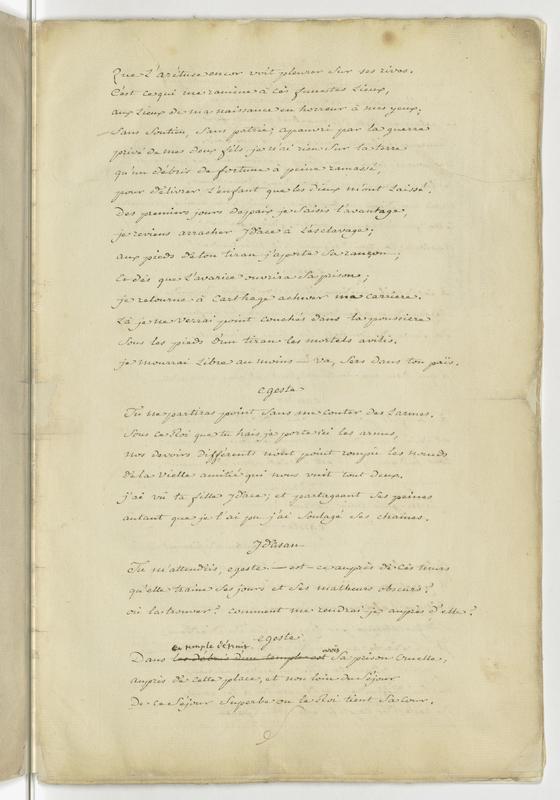 Que L'arétuse encor voit pleurer Sur ses rives.
C'est ce qui me ramène à cès funestes Lieux,
aux Lieux de ma naissance en horreur à mes yeux.
Sans Soutien, Sans patrie, apauvri par la guerre
privé de mes deux fils je n'ai rien Sur la terre
qu'un débris de fortune à peine ramassé,
pour délivrer L'enfant que les dieux m'ont Laissé.
Des premiers jours de paix je Saisis l'avantage,
je reviens arracher Ydace à L'esclavage;
aux pieds de ton tiran j'aporte Sa rançon;
Et dès que L'avarice ouvrira Sa prison;
je retourne à Carthage achever ma carriere.
Là je ne verrai point couchés dans la poussiere
Sous les pieds d'un tiran les mortels avilis.
je mourrai Libre au moins — va, Sers dans ton païs.
egeste
Tu ne partiras point Sans me couter des Larmes.
Sous ce Roi que tu hais je porte ici les armes,
nos devoirs différents n'ont point rompu les nœuds
de la vielle amitié qui nous unit tout deux.
j'ai vu ta fille Ydace; et partageant Ses peines
autant que je l'ai pu j'ai Soulagé Ses chaines.
Ydasan
Tu m'attendris, egeste — est-ce auprès de cès murs
qu'elle traine Ses jours et Ses malheurs obscurs?
où la trouver? comment me rendrai-je auprès d'elle?
egeste
ce temple détruit voit
Dans les débris d'un temple est Sa prison cruelle,
auprès de cette place, et non loin du Séjour
De ce Séjour Superbe ou le Roi tient Sa cour.